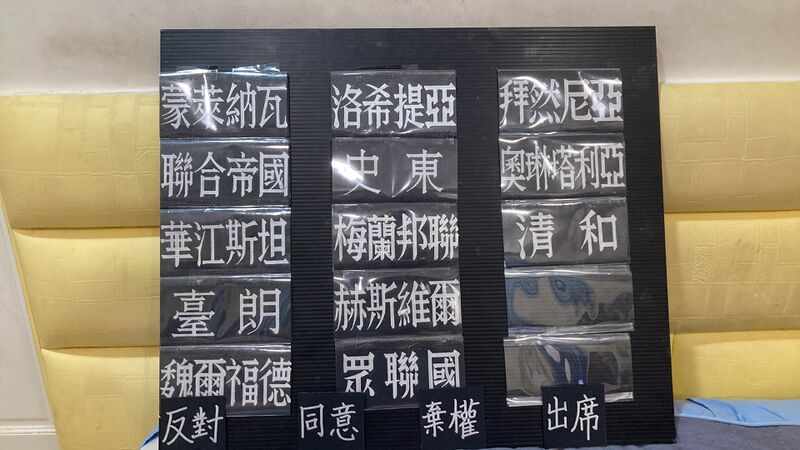 蒙萊納瓦
聯合帝國
華江斯坦
臺朗
魏爾福德
洛希提亞
史東
梅蘭邦聯
赫斯維爾
眾聯國
拜然尼亞
奧琳塔利亞
清和
反對
同意
棄權
出席